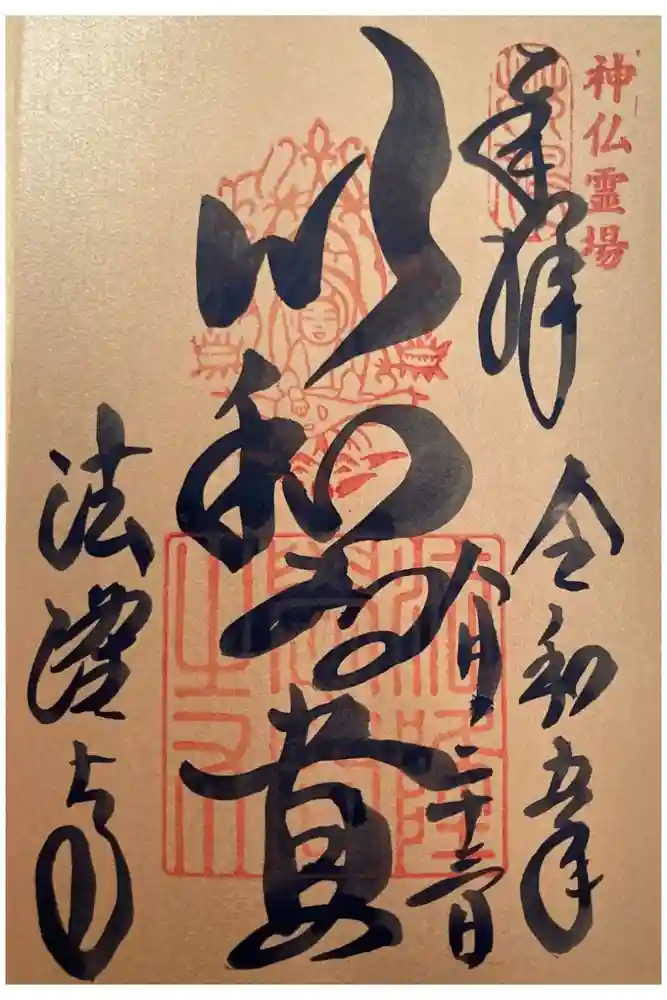 神仏霊場
奉拝
令和五年
八月二十三日
以和為貴
法隆寺